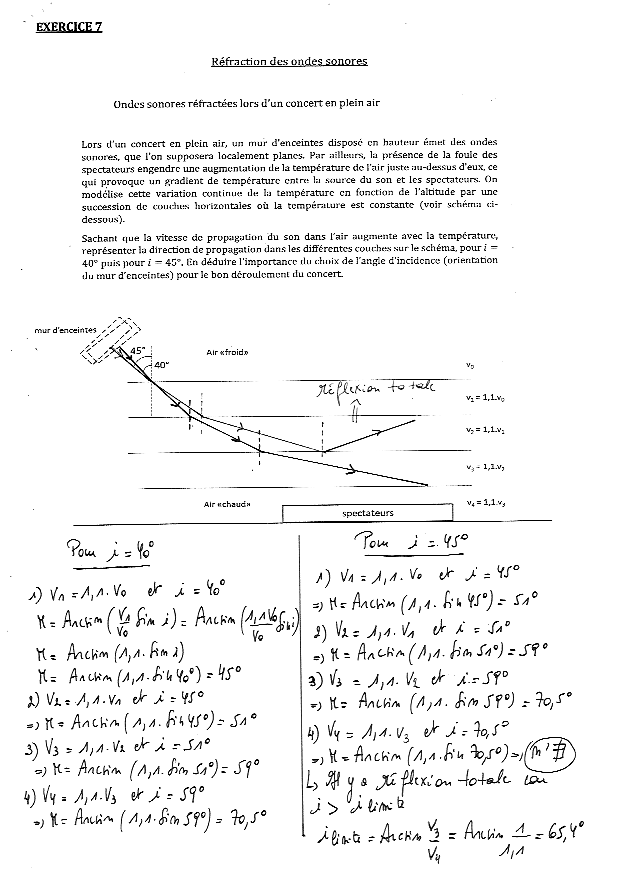 EXERCICE 7
Réfraction des ondes sonores
Ondes sonores réfractées lors d'un concert en plein air
Lors d'un concert en plein air, un mur d'enceintes disposé en hauteur émet des ondes
sonores, que l'on supposera localement planes. Par ailleurs, la présence de la foule des
spectateurs engendre une augmentation de la température de l'air juste au-dessus d'eux, ce
qui provoque un gradient de température entre la source du son et les spectateurs. On
modélise cette variation continue de la température en fonction de l'altitude par une
succession de couches horizontales où la température est constante (voir schéma ci-
dessous).
Sachant que la vitesse de propagation du son dans l'air augmente avec la température,
représenter la direction de propagation dans les différentes couches sur le schéma, pour i =
40° puis pour i = 45°. En déduire l'importance du choix de l'angle d'incidence (orientation
du mur d'enceintes) pour le bon déroulement du concert.
mur d'enceintes
45°
40°
Air «froid»
v₀
réflexion totale
v₁ = 1,1.v₀
v₂ = 1,1.v₁
v₃ = 1,1.v₂
Air «chaud»
v₄ = 1,1.v₃
spectateurs
Pour i = 40°
1) V1 = 1,1. V0 et i = 40°
r = Arcsin (V1/V0 sin i) = Arcsin (1,1V0/V0 sin i)
r = Arcsin (1,1. sin i)
r = Arcsin (1,1. sin 40°) = 45°
2) V2 = 1,1. V1 et i = 45°
=> r = Arcsin (1,1. sin 45°) = 51°
3) V3 = 1,1. V2 et i = 51°
=> r = Arcsin (1,1. sin 51°) = 59°
4) V4 = 1,1. V3 et i = 59°
=> r = Arcsin (1,1. sin 59°) = 70,5°
Pour i = 45°
1) V1 = 1,1. V0 et i = 45°
=> r = Arcsin (1,1. sin 45°) = 51°
2) V2 = 1,1. V1 et i = 51°
=> r = Arcsin (1,1. sin 51°) = 59°
3) V3 = 1,1. V2 et i = 59°
=> r = Arcsin (1,1. sin 59°) = 70,5°
4) V4 = 1,1. V3 et i = 70,5°
=> r = Arcsin (1,1. sin 70,5°) => r ∄
↳ Il y a réflexion totale car
i > i limite
i limite = Arcsin V3/V4 = Arcsin 1/1,1 = 65,4°